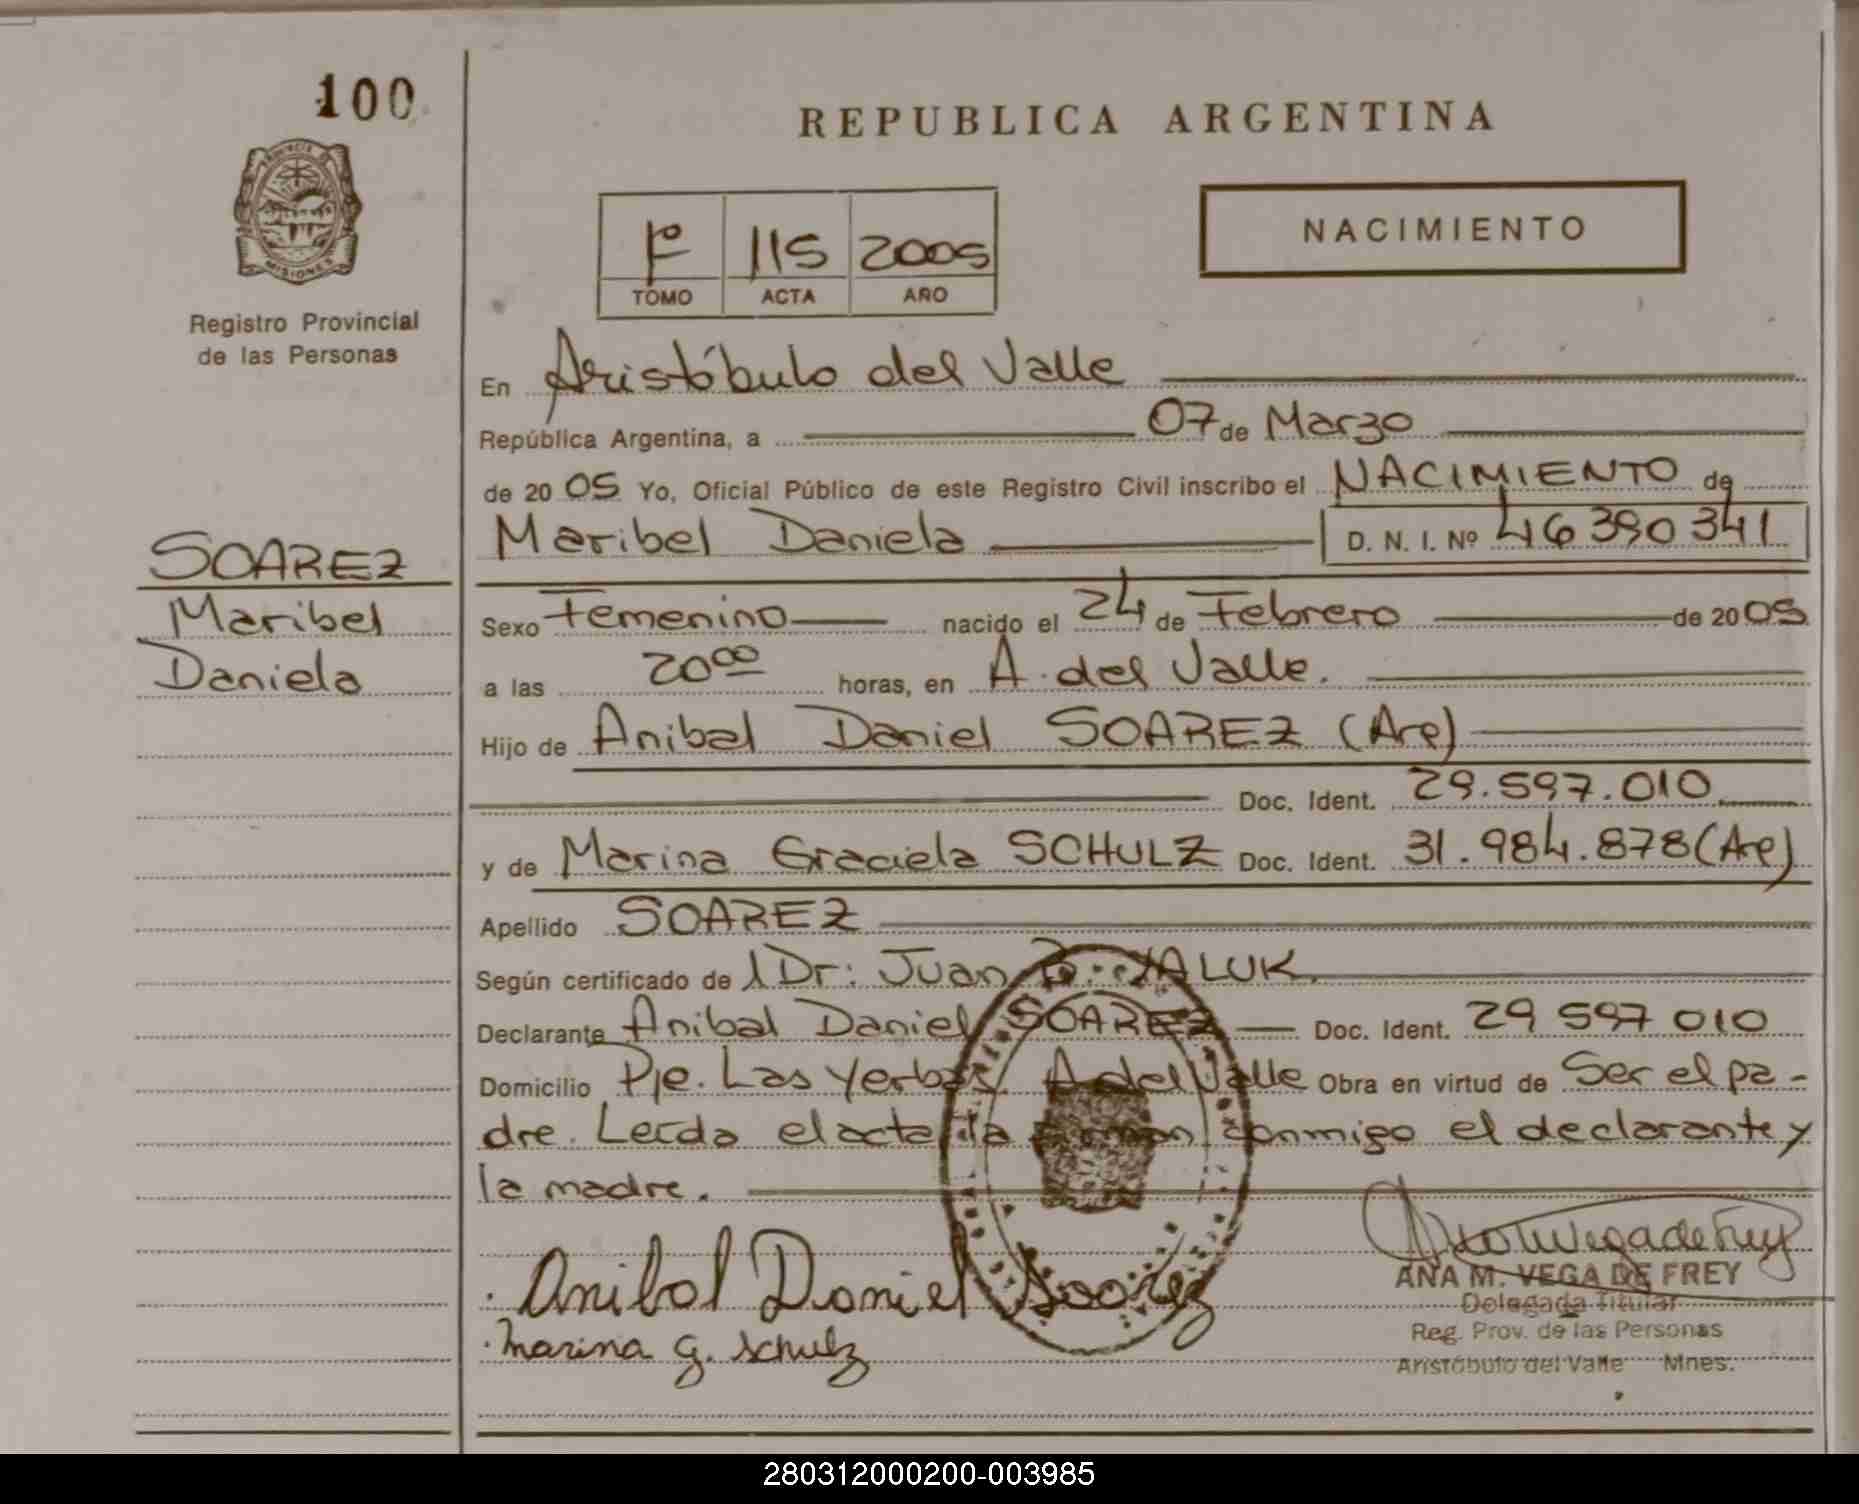 100
PROVINCIA DE
MISIONES
Registro Provincial
de las Personas
SOAREZ
Maribel
Daniela
REPUBLICA ARGENTINA
1º 115 2005
TOMO ACTA AÑO
NACIMIENTO
En Aristóbulo del Valle
República Argentina, a 07 de Marzo
de 20 05 Yo, Oficial Público de este Registro Civil inscribo el NACIMIENTO de
Maribel Daniela D. N. I. Nº 46390341
Sexo Femenino nacido el 24 de Febrero de 20 05
a las 20⁰⁰ horas, en A. del Valle.
Hijo de Anibal Daniel SOAREZ (Arg)
Doc. Ident. 29.597.010
y de Marina Graciela SCHULZ Doc. Ident. 31.984.878 (Arg)
Apellido SOAREZ
Según certificado de l Dr: Juan
Declarante Anibal Daniel SOAREZ Doc. Ident. 29 597 010
Domicilio Pje. Las Yerbas. A del Valle Obra en virtud de Ser el pa-
dre. Leída el acta la firman conmigo el declarante y
la madre.
Anibal Daniel Soarez
Marina G. Schulz
ANA M. VEGA DE FREY
Delegada Titular
Reg. Prov. de las Personas
Aristóbulo del Valle Mnes.
280312000200-003985